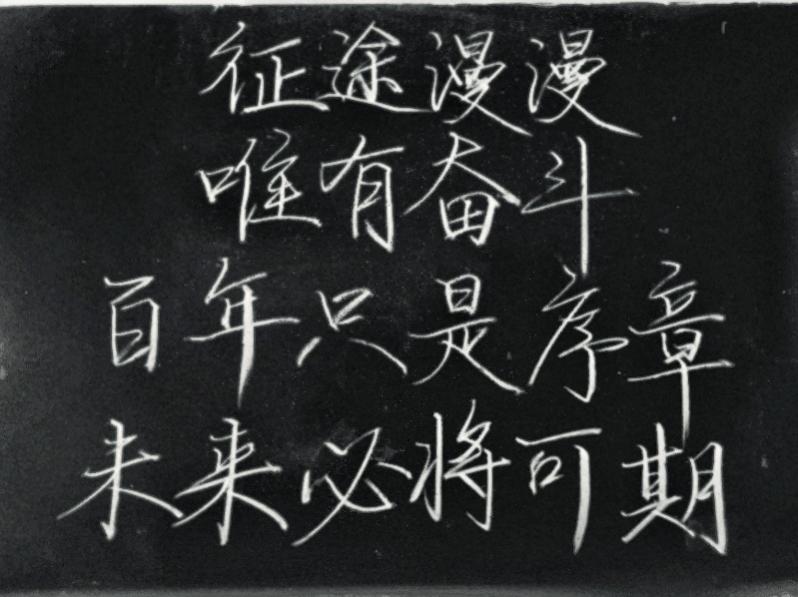 征途漫漫
唯有奋斗
百年只是序章
未来必将可期